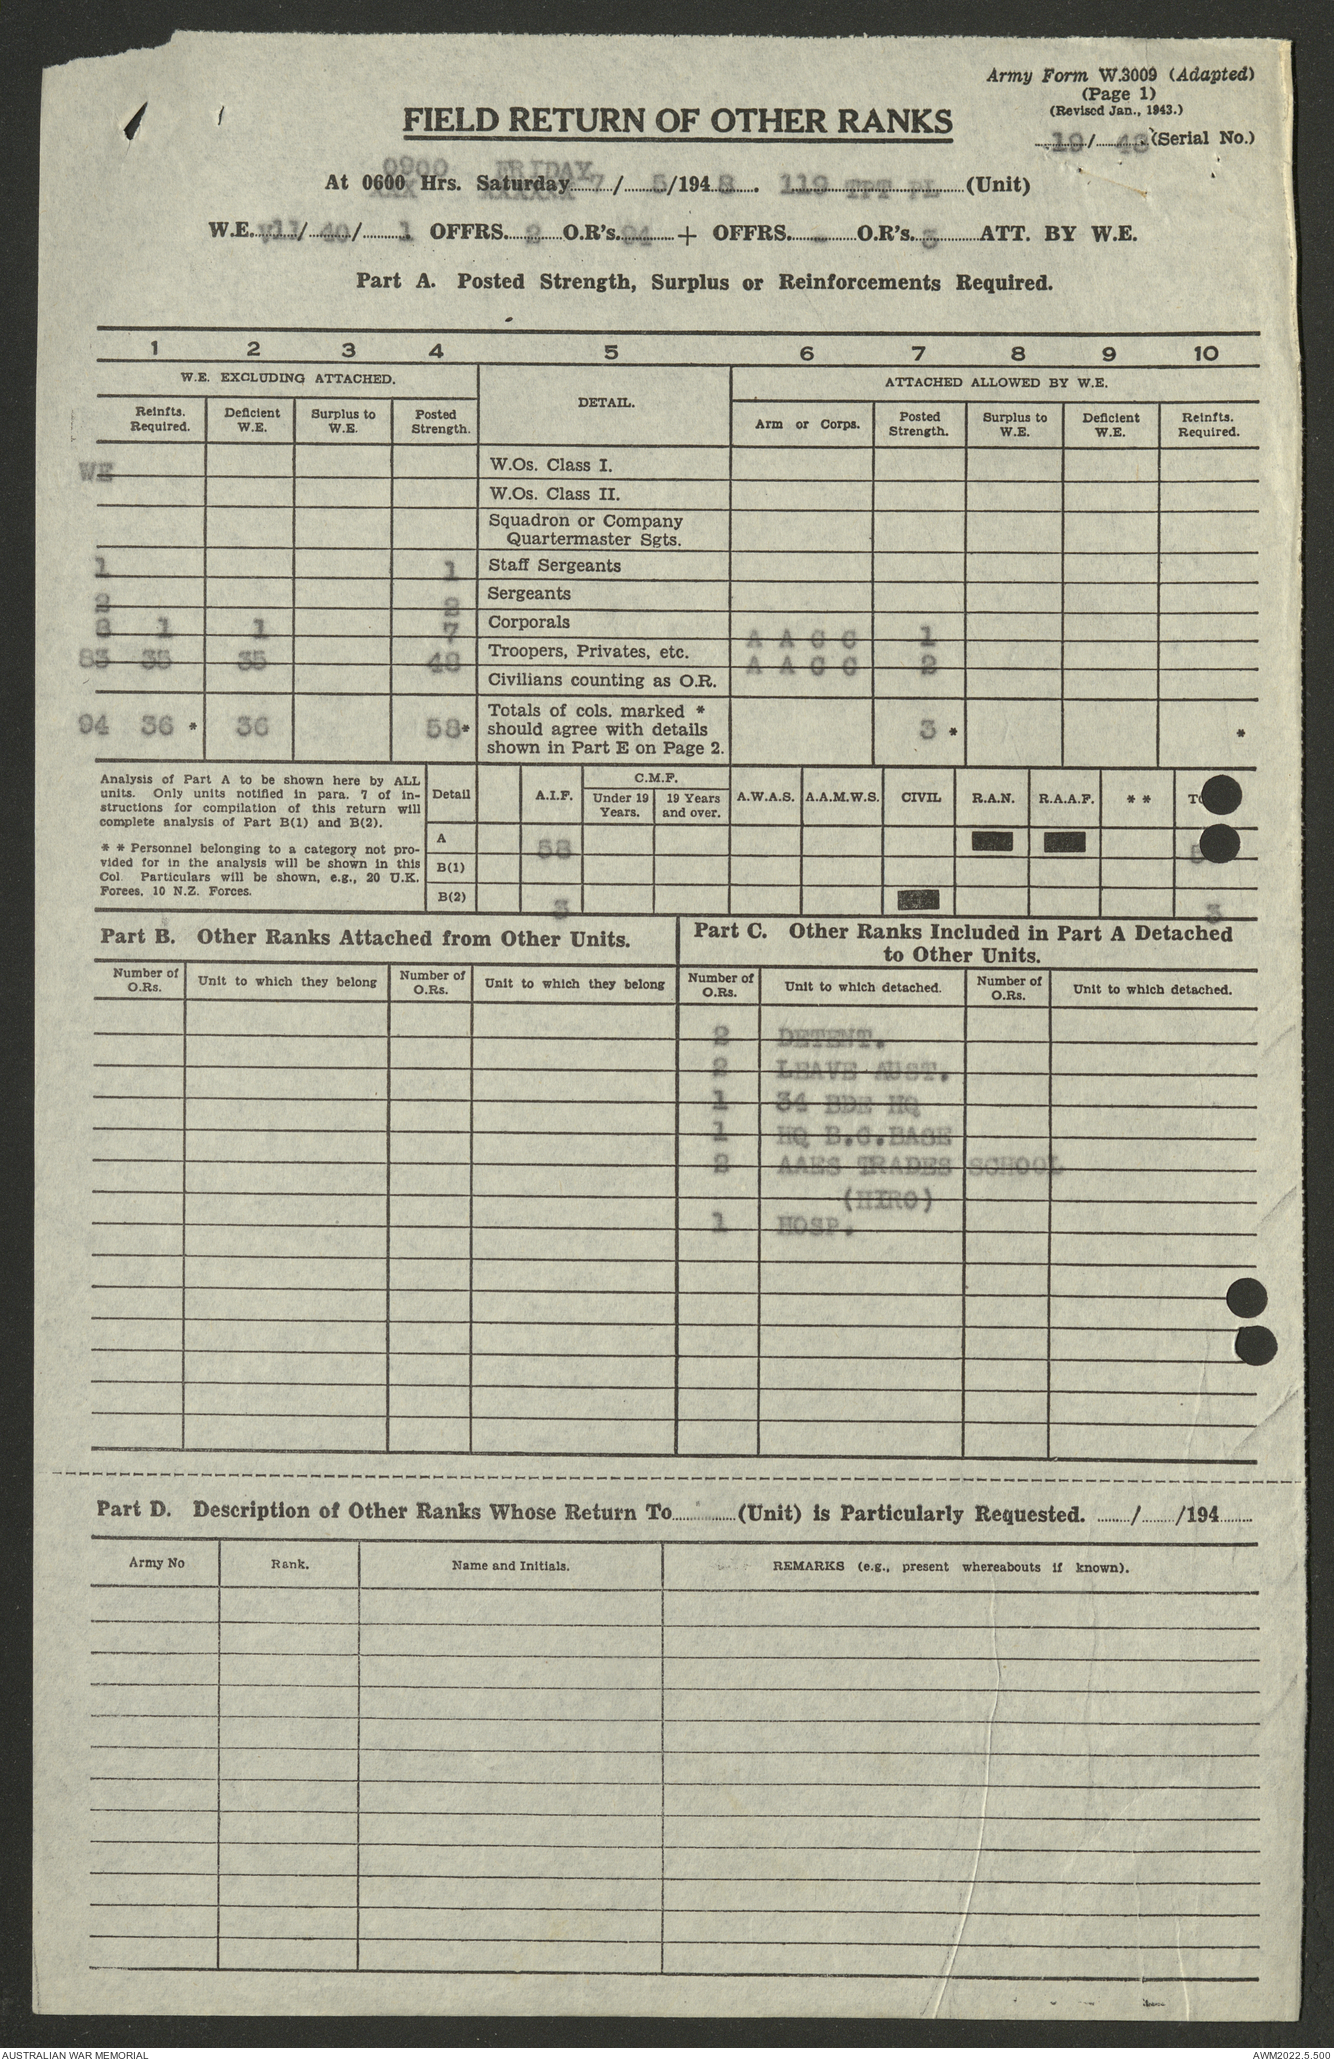 Army Form W.3009 (Adapted)
(Page 1)
(Revised Jan., 1943.)
19/48 (Serial No.)
FIELD RETURN OF OTHER RANKS
0900 FRIDAY
At 0600 Hrs. Saturday 7/5/1948. 119 TPT PL (Unit)
XXX XXXXXX
W.E. V11/40/1 OFFRS. 2 O.R's. 94 + OFFRS. - O.R's. 3 ATT. BY W.E.
Part A. Posted Strength, Surplus or Reinforcements Required.
1 2 3 4 5 6 7 8 9 10
W.E. EXCLUDING ATTACHED. DETAIL. ATTACHED ALLOWED BY W.E.
Reinfts. Required. Deficient W.E. Surplus to W.E. Posted Strength. Arm or Corps. Posted Strength. Surplus to W.E. Deficient W.E. Reinfts. Required.
WE W.Os. Class I.
W.Os. Class II.
Squadron or Company
Quartermaster Sgts.
1 1 Staff Sergeants
2 2 Sergeants
8 1 1 7 Corporals A A C C 1
83 35 35 48 Troopers, Privates, etc. A A C C 2
Civilians counting as O.R.
94 36 * 36 58* Totals of cols. marked * should agree with details shown in Part E on Page 2. 3 * *
Analysis of Part A to be shown here by ALL
units. Only units notified in para. 7 of in-
structions for compilation of this return will
complete analysis of Part B(1) and B(2).
* * Personnel belonging to a category not pro-
vided for in the analysis will be shown in this
Col. Particulars will be shown, e.g., 20 U.K.
Forces, 10 N.Z. Forces.
Detail A.I.F. C.M.F. Under 19 Years. 19 Years and over. A.W.A.S. A.A.M.W.S. CIVIL R.A.N. R.A.A.F. * *
A 58
B(1)
B(2) 3 3
Part B. Other Ranks Attached from Other Units.
Number of O.Rs. Unit to which they belong Number of O.Rs. Unit to which they belong
Part C. Other Ranks Included in Part A Detached
to Other Units.
Number of O.Rs. Unit to which detached. Number of O.Rs. Unit to which detached.
2 DETENT.
2 LEAVE AUST.
1 34 BDE HQ
1 HQ B.C.BASE
2 AAES TRADES SCHOOL
(HIRO)
1 HOSP.
Part D. Description of Other Ranks Whose Return To (Unit) is Particularly Requested. / /194
Army No Rank. Name and Initials. REMARKS (e.g., present whereabouts if known).
AUSTRALIAN WAR MEMORIAL AWM2022.5.500